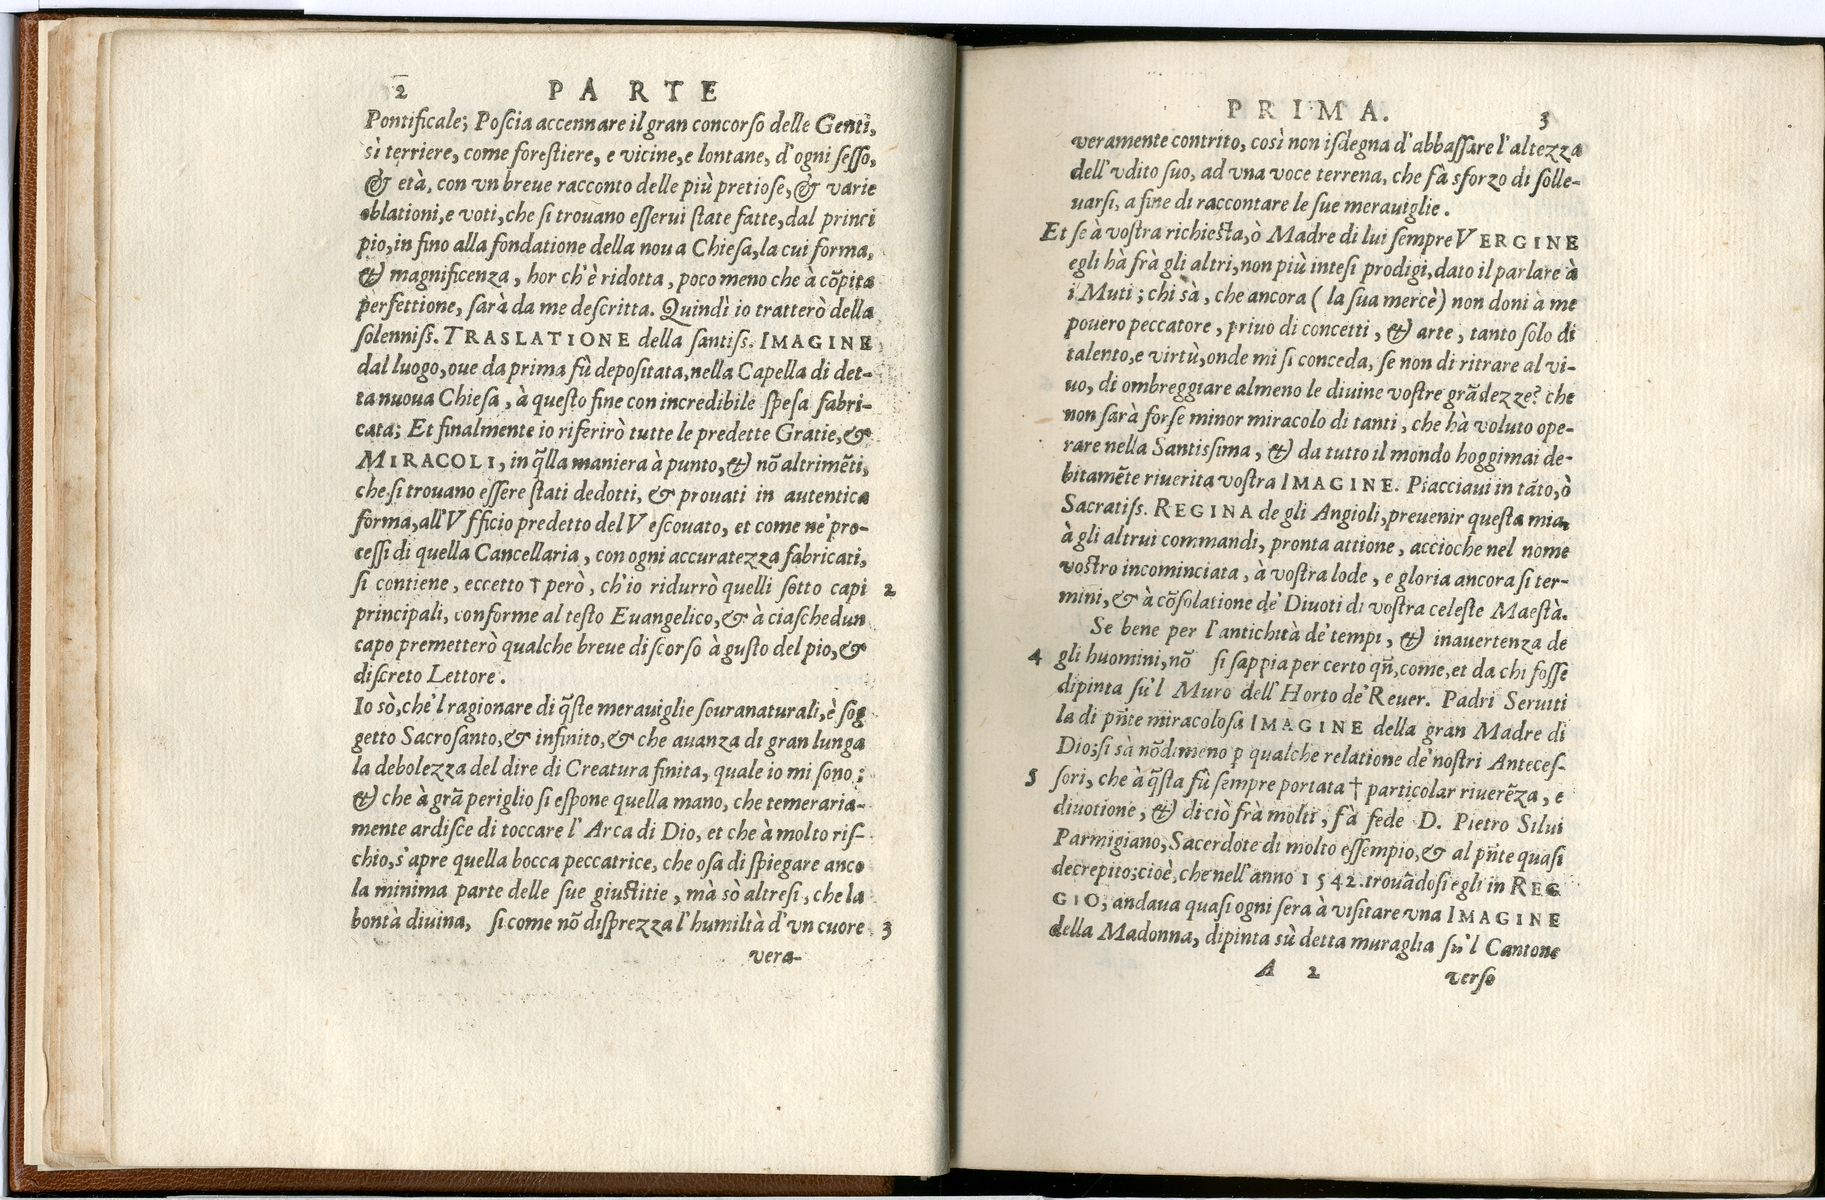 2 PARTE
Pontificale; Poſcia accennare il gran concorſo delle Genti,
sì terriere, come foreſtiere, e vicine, e lontane, d'ogni ſeſſo,
& età, con vn breue racconto delle più pretioſe, & varie
oblationi, e voti, che ſi trouano eſſerui ſtate fatte, dal princi
pio, in fino alla fondatione della noua Chieſa, la cui forma,
& magnificenza, hor ch'è ridotta, poco meno che à cõpita
perfettione, ſarà da me deſcritta. Quindi io tratterò della
ſolenniſs. TRASLATIONE della ſantiſs. IMAGINE
dal luogo, oue da prima fù depoſitata, nella Capella di det-
ta nuoua Chieſa, à queſto fine con incredibile ſpeſa fabri-
cata; Et finalmente io riferirò tutte le predette Gratie, &
MIRACOLI, in q̃lla maniera à punto, & nõ altrimẽti,
che ſi trouano eſſere ſtati dedotti, & prouati in autentica
forma, all'Vfficio predetto del Veſcouato, et come ne' pro-
ceſſi di quella Cancellaria, con ogni accuratezza fabricati,
ſi contiene, eccetto † però, ch'io ridurrò quelli ſotto capi 2
principali, conforme al teſto Euangelico, & à ciaſchedun
capo premetterò qualche breue diſcorſo à guſto del pio, &
diſcreto Lettore.
Io sò, che'l ragionare di q̃ſte merauiglie ſouranaturali, è ſog
getto Sacroſanto, & infinito, & che auanza di gran lunga
la debolezza del dire di Creatura finita, quale io mi ſono;
& che à grã periglio ſi eſpone quella mano, che temeraria-
mente ardiſce di toccare l'Arca di Dio, et che à molto riſ-
chio, s'apre quella bocca peccatrice, che oſa di ſpiegare anco
la minima parte delle ſue giuſtitie, mà sò altreſi, che la
bontà diuina, ſi come nõ diſprezza l'humiltà d'vn cuore 3
vera-
PRIMA. 3
veramente contrito, così non iſdegna d'abbaſſare l'altezza
dell'vdito ſuo, ad vna voce terrena, che fà sforzo di ſolle-
uarſi, a fine di raccontare le ſue merauiglie.
Et ſe à voſtra richieſta, ò Madre di lui ſempre VERGINE
egli hà frà gli altri, non più inteſi prodigi, dato il parlare à
i Muti; chi sà, che ancora (la ſua mercè) non doni à me
pouero peccatore, priuo di concetti, & arte, tanto ſolo di
talento, e virtù, onde mi ſi conceda, ſe non di ritrare al vi-
uo, di ombreggiare almeno le diuine voſtre grãdezze? che
non ſarà forſe minor miracolo di tanti, che hà voluto ope-
rare nella Santiſſima, & da tutto il mondo hoggimai de-
bitamẽte riuerita voſtra IMAGINE. Piacciaui in tãto, ò
Sacratiſs. REGINA de gli Angioli, preuenir queſta mia,
à gli altrui commandi, pronta attione, accioche nel nome
voſtro incominciata, à voſtra lode, e gloria ancora ſi ter-
mini, & à cõſolatione de' Diuoti di voſtra celeſte Maeſtà.
Se bene per l'antichità de' tempi, & inauertenza de
4 gli huomini, nõ ſi ſappia per certo qñ, come, et da chi foſſe
dipinta ſu'l Muro dell'Horto de' Reuer. Padri Seruiti
la di pñte miracoloſa IMAGINE della gran Madre di
Dio; ſi sà nõdimeno ꝑ qualche relatione de' noſtri Anteceſ-
5 ſori, che à q̃ſta fù ſempre portata † particolar riuerẽza, e
diuotione, & di ciò frà molti, fà fede D. Pietro Silui
Parmigiano, Sacerdote di molto eſſempio, & al pñte quaſi
decrepito; cioè, che nell'anno 1542. trouãdoſi egli in REG
GIO, andaua quaſi ogni ſera à viſitare vna IMAGINE
della Madonna, dipinta sù detta muraglia ſu'l Cantone
A 2 verſo